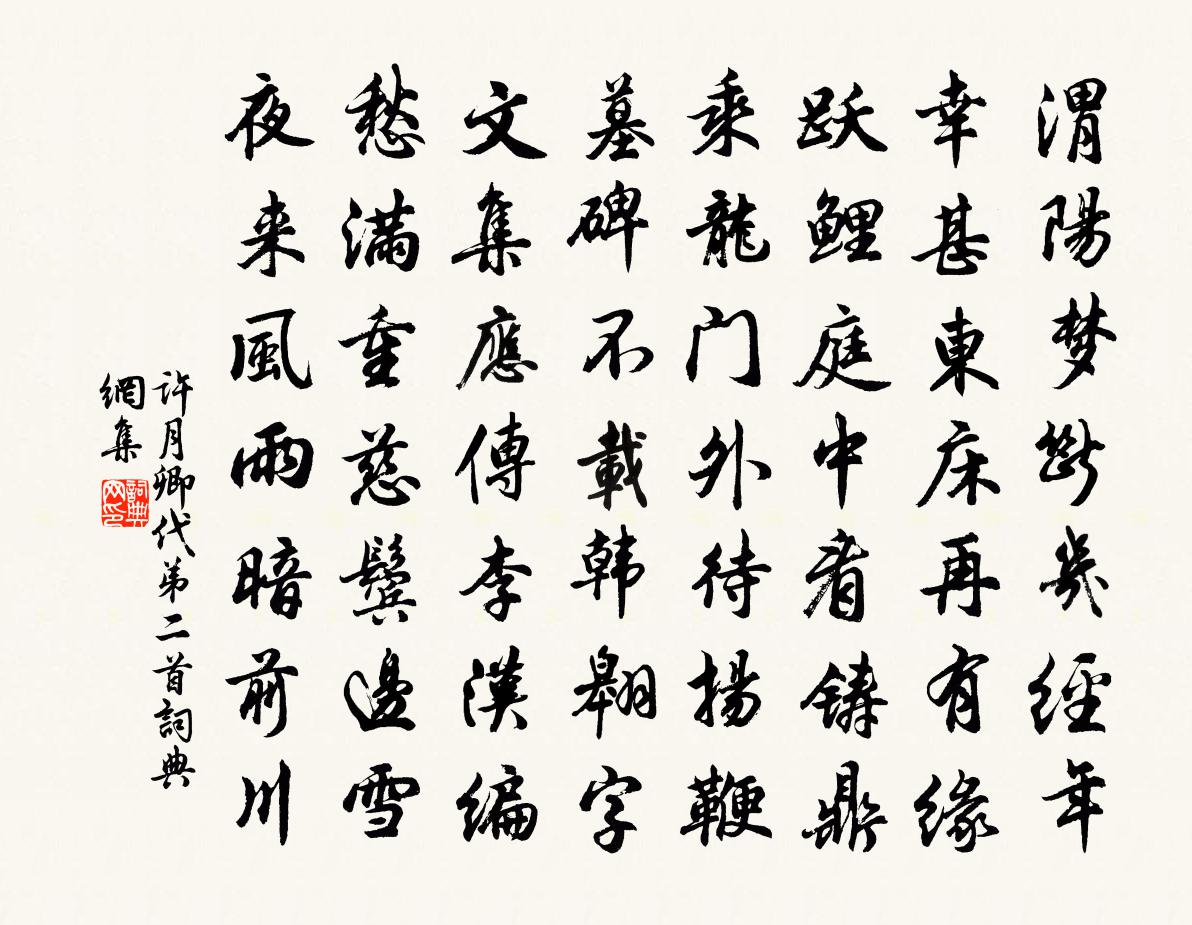 渭陽梦斷幾經年
幸甚東床再有緣
跃鲤庭中看鑄鼎
乘龍门外待揚鞭
墓碑不載韩翱字
文集應傳李漢编
愁满重慈鬓邊雪
夜来風雨暗前川
許月卿代第二首詞典
網集
詞典网印